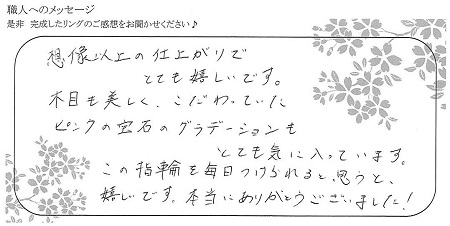 職人へのメッセージ
是非 完成したリングのご感想をお聞かせください♪
想像以上の仕上がりで
とても嬉しいです。
木目も美しく、こだわっていた
ピンクの宝石のグラデーションも
とても気に入っています。
この指輪を毎日つけられると思うと、
嬉しいです。本当にありがとうございました!